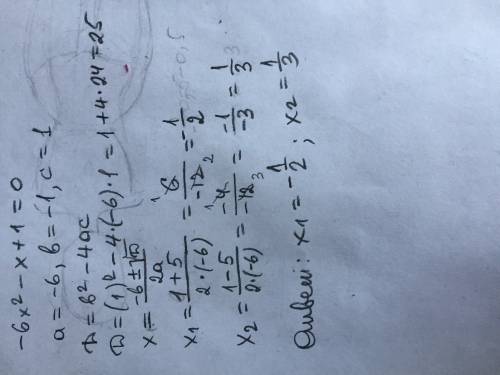 -6x² - x + 1 = 0
a = -6, b = -1, c = 1
D = b² - 4ac
D = (1)² - 4·(-6)·1 = 1 + 4·24 = 25
x = (-b ± √D) / 2a
x₁ = (1+5) / (2·(-6)) = 6 / -12 = -1/2
x₂ = (1-5) / (2·(-6)) = -4 / -12 = -1 / -3 = 1/3
Ответ: x₁ = -1/2; x₂ = 1/3